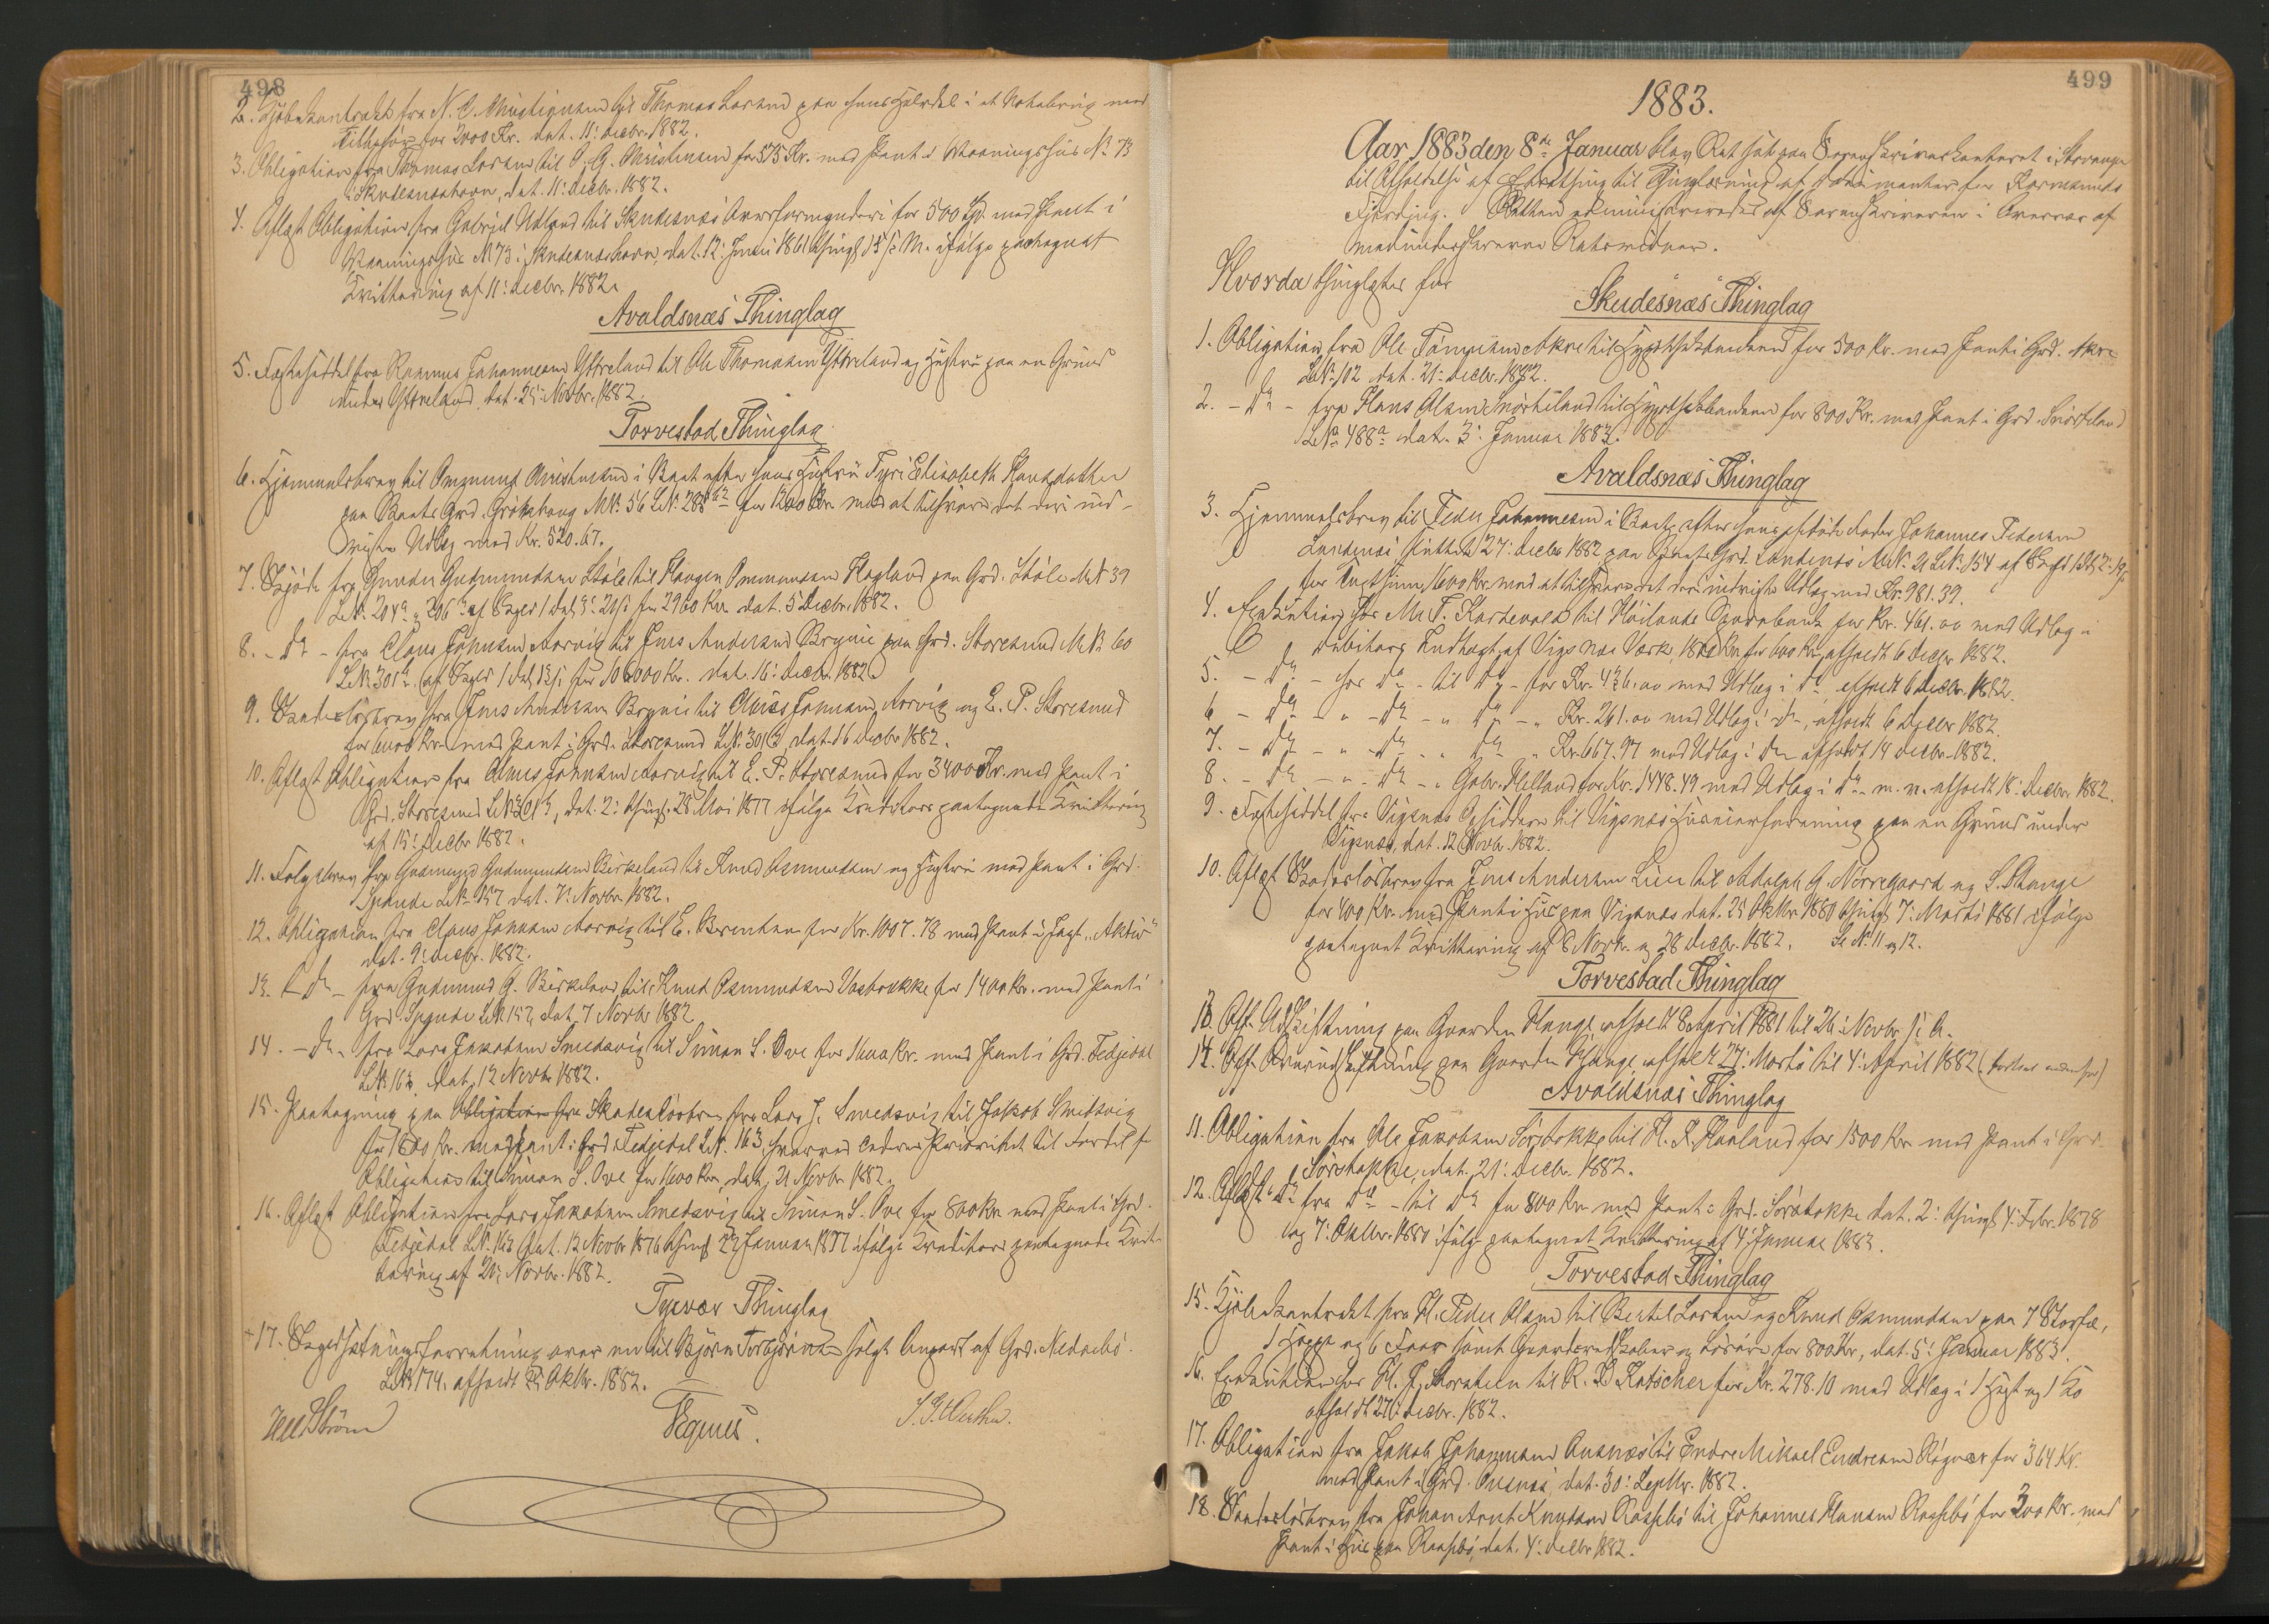 498
2. Kjøbekontrakt fra N. C. Christiansen til Thomas Larsen paa hans Halvdel i et Notebrug med
Tilbehør for 2000 Kr. dat. 11: Decbr. 1882.
3. Obligation fra Thomas Larsen til O. G. Christensen for 575 Kr. med Pant i Vaaningshus No 73
i Skudesneshavn, dat. 11: Decbr. 1882.
4. Aflæst Obligation fra Gabriel Udland til Skudesnæs Overformynderi for 500 Spd. med Pant i
Vaaningshus N 73 i Skudesneshavn, dat. 12: Juni 1861 thingl. s. M. ifølge paategnet
Kvittering af 11: Decbr. 1882.
Avaldsnæs Thinglag
5. Fæsteseddel fra Rasmus Johannesen Ytreland til Ole Thomasen Ytreland og Hustru paa en Grund
under Ytreland, dat. 25: Novbr. 1882.
Torvestad Thinglag
6. Hjemmelsbrev til Omund Christensen i Boet efter hans Hustru Tyri Elisabeth Hansdatter
paa Boets Grd. Grønhaug MN: 56 LN: 288 for 1200 Kr. mod at tilsvare det deri ind-
vist Udlæg med Kr. 520.67.
7. Skjøde fra Gunder Gudmundsen Støle til Haagen Ommundsen Hagland paa Grd. Støle MN 39
LN: 204a & 206 af Skyld 1 Dal. 3: 21 s for 2960 Kr. dat. 5 Decbr. 1882.
8. - do - fra Claus Johnsen Aarvig til Jens Andersen Brynie paa Grd. Storesund MN: 60
LN 301 b. (af Skyld 1 Dal for 10 000 Kr. dat. 16: Decbr. 1882.
9. Skadesløsbrev fra Jens Andersen Brynie til Claus Johnsen Aarvig og E. P. Storesund
for 6000 Kr. med Pant i Grd. Storesund LN: 301 b, dat. 16 Decbr 1882.
10. Aflæst Obligation fra Claus Johnsen Aarvig til E. P. Storesund for 3400 Kr. med Pant i
Grd. Storesund LN: 301 b, dat. 2: thingl. 28 Mai 1877 ifølge Kreditors paategnede Kvittering
af 15: Decbr 1882.
11. Følgebrev fra Gudmund Gudmundsen Birkeland til Knud Asmundsen og Hustru med Pant i Grd.
Spande LN: 157 dat. 7: Novbr. 1882.
12. Obligation fra Claus Johnsen Aarvig til E. Berentsen for Kr. 1007.78 med Pant i Jagt "Aktiv"
dat. 9: Decbr. 1882.
13. - do - fra Gudmund G. Birkeland til Knud Asmundsen Vasbrække for 1400 Kr. med Pant i
Grd. Spande LN. 157, dat. 7 Novbr 1882.
14. - do - fra Lars Jakobsen Smedsvig til Simon S. Ove for 1600 Kr. med Pant i Grd. Fedjedal
LN: 163 dat. 12 Novbr. 1882.
15. Paategning paa Obligation fra Skadesløsbrev fra Lars J. Smedsvig til Jakob Smedsvig
for 1600 Kr. med Pant i Grd Fedjedal LN. 163, hvorved cederes Prioritet til Fordel f.
Obligation til Simon S. Ove for 1600 Kr., dat. 21 Novbr 1882.
16. Aflæst Obligation fra Lars Jakobsen Smedsvig til Simon S. Ove for 800 Kr. med Pant i Grd.
Fedjedal LN. 163 dat. 13 Novbr 1876 thingl. 22 Januar 1877 ifølge Kreditors paategnede Kvit-
tering af 20: Novbr. 1882.
Tysvær Thinglag
+ 17. Skyldsætningsforretning over en til Bjørn Torbjørnsen solgt Anpart af Grd. Nedrebø
LN: 174, afholdt 25 Oktbr. 1882.
Vegner.
499
1883.
Aar 1883 den 8de Januar blev Ret sat paa Sorenskriverkontoret i Stavanger
til Afholdelse af Extrathing til Thinglæsning af Dokumenter for Karmsunds
Fjerding. Retten administreredes af Sorenskriveren i Overvær af
medunderskrevne Retsvidner.
Hvorda thinglæstes for
Skudesnæs Thinglag
1. Obligation fra Ole Tønnesen Akre til Hypothekbanken for 500 Kr. med Pant i Grd. Akre
LNo 102 dat. 21: Decbr. 1882.
2. - do - fra Hans Olsen Snørteland til Hypothekbanken for 800 Kr. med Pant i Grd. Snørteland
LNo 488a dat. 3: Januar 1883.
Avaldsnæs Thinglag
3. Hjemmelsbrev til Peder Johannesen i Boet efter hans afdøde Fader Johannes Pedersen
Landenæs sluttet 27: Decbr 1882 paa Boets Grd. Landenæs MN: 21 LN: 154 af Skyld
for Kjøbesum 1600 Kr. mod at tilsvare det deri indviste Udlæg med Kr. 981.39.
4. Exekution hos M. F. Kartevold til Høilands Sparebank for Kr. 461.00 med Udlæg i
Debitors Indtægt af Vigsnæs Værk, 1800 Kr. for 600 Kr., afholdt 6 Decbr 1882.
5. - do - hos do - til do - for Kr. 436.00 med Udlæg i do afholdt 6 Decbr. 1882.
6 - do - " - do - " do - " Kr. 261.00 med Udlæg i do -, afholdt 6 Decbr 1882.
7. - do - " - do - " do " Kr. 667.97 med Udlæg i do afholdt 14 Decbr. 1882.
8. - do - " - do - " Gabr. Helland for Kr. 1448.49 med Udlæg i do - m. v. afholdt 18: Decbr. 1882.
9. Fæsteseddel fra Vigsnæs Opsiddere til Vigsnæs Huseierforening paa en Grund under
Vigsnæs, dat. 12 Novbr. 1882.
10. Aflæst Skadesløsbrev fra Jens Andersen Lier til Adolph G. Nørregaard og S. Stange
for 400 Kr. med Pant i Hus paa Vigsnæs dat. 25 Oktbr. 1880 thingl. 7: Marts 1881 ifølge
paategnet Kvittering af 8 Novbr. og 28 Decbr. 1882. Se N: 11 og 12.
Torvestad Thinglag
13. Aft. Udskiftning paa Gaarden Hauge afholdt 8 April 1881 til 26: Novbr. s: A.
14. Aft. Overudskiftning paa Gaarden Hauge, afholdt 27: Marts til 4: April 1882 (
Avaldsnæs Thinglag
11. Obligation fra Ole Jakobsen Sørstokke til H. R. Haaland for 1500 Kr med Pant i Grd.
Sørstokke, dat. 21: Decbr. 1882.
12. Aflæst do fra do - til do for 800 Kr. med Pant i Grd. Sørstokke dat. 2: thingl. 4: Febr. 1878
og 7: Oktbr. 1880 ifølge paategnet Kvittering af 4: Januar 1883.
Torvestad Thinglag
15. Kjøbekontrakt fra H. Peder Olsen til Bertel Larsen og Knud Asmundsen paa 7 Storfæ,
1 Hoppe og 6 Faar samt Gaardsredskaber og Løsøre for 800 Kr, dat. 5: Januar 1883.
16. Exekution hos H. J. Thorsteen til R. B. Kotscher for Kr. 278.10 med Udlæg i 1 Hest og 1 Ko
afholdt 27: Decbr. 1882.
17. Obligation fra Jakob Johannesen Ausnæs til Endre Mikael Endresen Røgvær for 364 Kr.
med Pant i Grd. Ausnæs, dat. 30: Septbr. 1882.
18. Skadesløsbrev fra Johan Arnt Knudsen Rossebø til Johannes Hansen Rossebø for 300 Kr. med
Pant i Hus paa Rossebø, dat. 4: Decbr 1882.